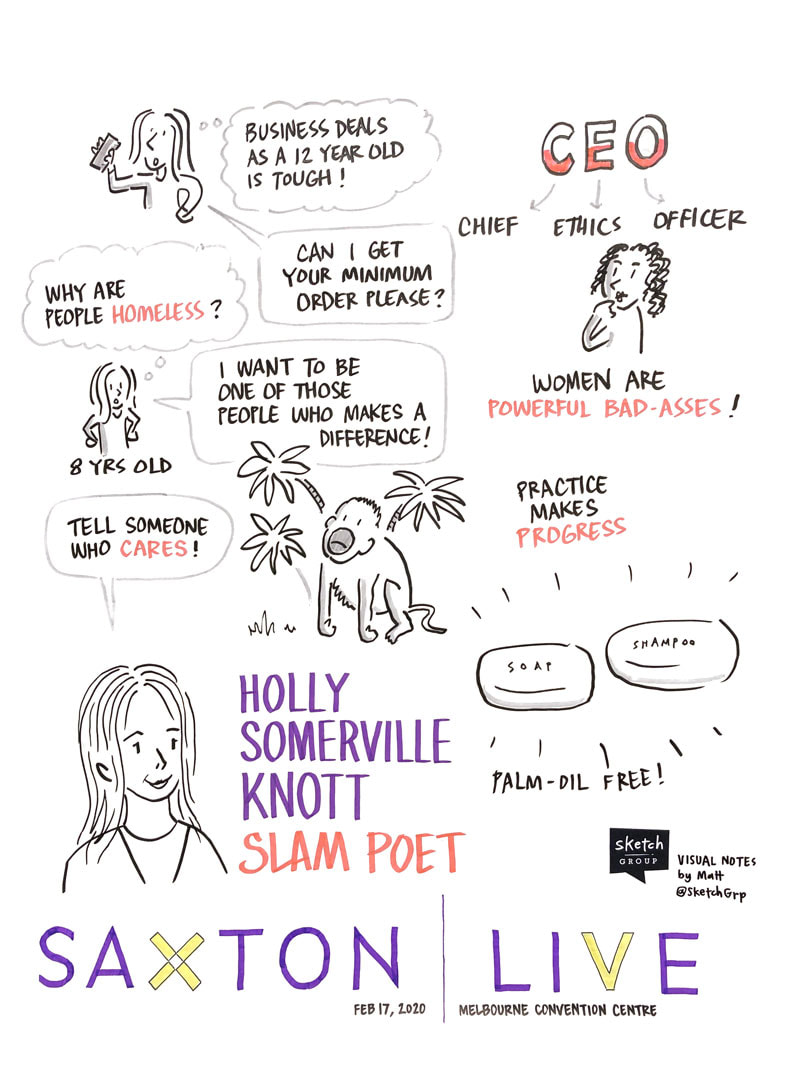 BUSINESS DEALS
AS A 12 YEAR OLD
IS TOUGH!
CAN I GET
YOUR MINIMUM
ORDER PLEASE?
WHY ARE
PEOPLE HOMELESS?
I WANT TO BE
ONE OF THOSE
PEOPLE WHO MAKES A
DIFFERENCE!
8 YRS OLD
TELL SOMEONE
WHO CARES!
HOLLY
SOMERVILLE
KNOTT
SLAM POET
CEO
CHIEF ETHICS OFFICER
WOMEN ARE
POWERFUL BAD-ASSES!
PRACTICE
MAKES
PROGRESS
SOAP
SHAMPOO
PALM-OIL FREE!
sketch
GROUP
VISUAL NOTES
by Matt
@SketchGrp
SAXTON LIVE
FEB 17, 2020
MELBOURNE CONVENTION CENTRE